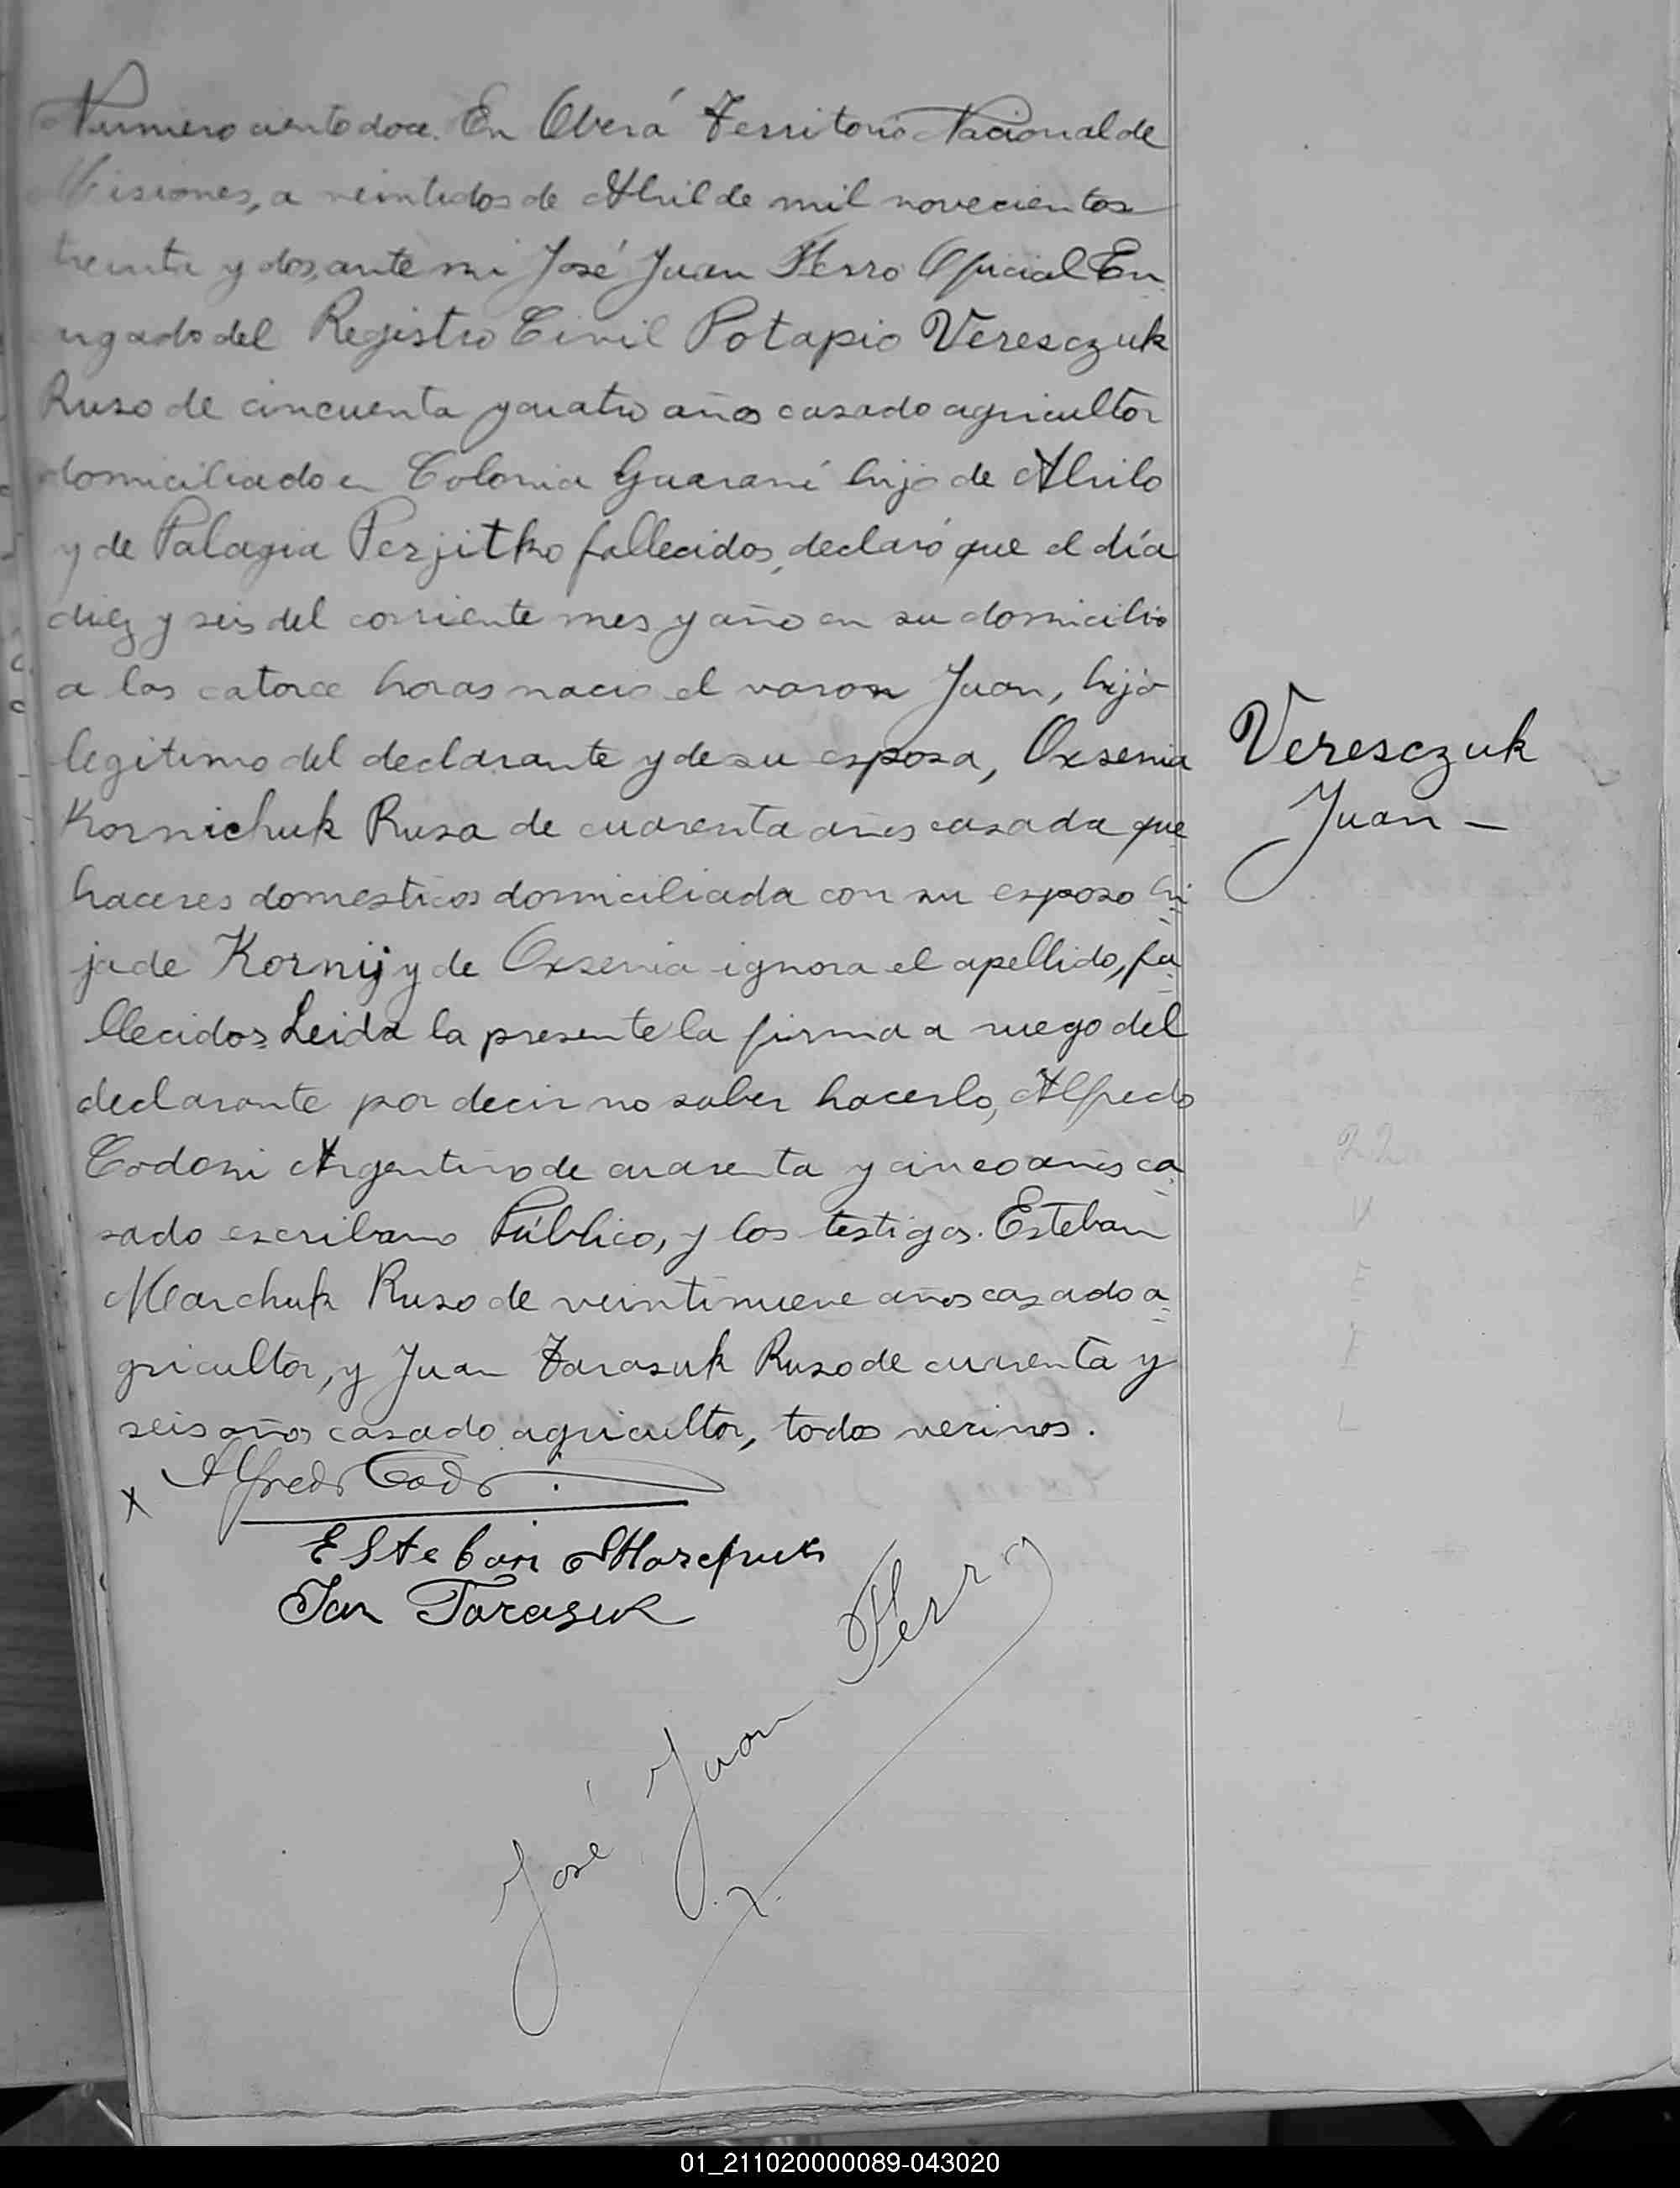 Numero ciento doce. En Oberá Territorio Nacional de
Misiones, a veintidos de Abril de mil novecientos
treinta y dos, ante mi José Juan Ferro Oficial En
urgado del Registro Civil Potapio Veresczuk
Ruso de cincuenta y cuatro años casado agricultor
domiciliado en Colonia Guaraní hijo de
y de Palagia Perjitko fallecidos, declaró que el día
diez y seis del corriente mes y año en su domicilio
a las catorce horas nacio el varon Juan, hijo
legitimo del declarante y de su esposa, Oxsenia
Kornichuk Rusa de cuarenta años casada que
haceres domesticos domiciliada con su esposo hi
ja de Kornij y de Oxsenia ignora el apellido, fa
llecidos. Leida la presente la firma a ruego del
declarante por decir no saber hacerlo, Alfredo
Codoni Argentino de cuarenta y cinco años ca
sado escribano Público, y los testigos. Esteban
Marchuk Ruso de veintinueve años casado a
gricultor, y Juan Tarasuk Ruso de cuarenta y
seis años casado agricultor, todos vecinos.
Veresczuk
Juan -
x Alfredo
Esteban
Jan Tarasuk
José Juan Ferro
22
V
E
F
L
01_211020000089-043020